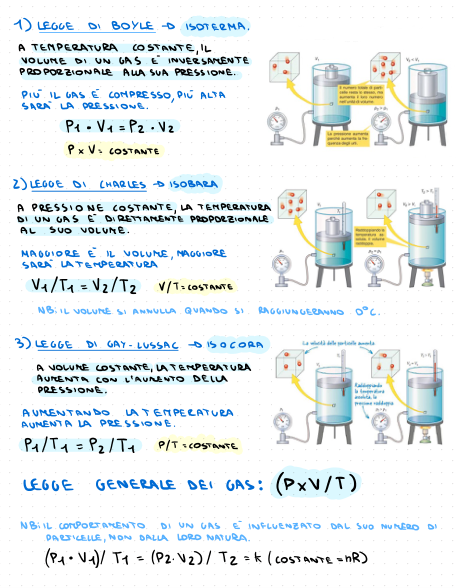 1) LEGGE DI BOYLE → ISOTERMA.
A TEMPERATURA COSTANTE, IL
VOLUME DI UN GAS È INVERSAMENTE
PROPORZIONALE ALLA SUA PRESSIONE.
PIÙ IL GAS È COMPRESSO, PIÙ ALTA
SARÀ LA PRESSIONE.
P1 • V1 = P2 • V2
P x V = COSTANTE
Il numero totale di parti-
celle resta lo stesso, ma
aumenta il loro numero
nell'unità di volume
La pressione aumenta
perché aumenta la fre-
quenza degli urti.
2) LEGGE DI CHARLES → ISOBARA
A PRESSIONE COSTANTE, LA TEMPERATURA
DI UN GAS È DIRETTAMENTE PROPORZIONALE
AL SUO VOLUME.
MAGGIORE È IL VOLUME, MAGGIORE
SARÀ LA TEMPERATURA
V1/T1 = V2/T2 V/T = COSTANTE
NB: IL VOLUME SI ANNULLA QUANDO SI RAGGIUNGERANNO 0°C.
Raddoppiando la
temperatura as-
soluta, il volume
raddoppia.
3) LEGGE DI GAY-LUSSAC → ISOCORA
A VOLUME COSTANTE, LA TEMPERATURA
AUMENTA CON L'AUMENTO DELLA
PRESSIONE.
AUMENTANDO LA TEMPERATURA
AUMENTA LA PRESSIONE.
P1/T1 = P2/T1 P/T = COSTANTE
La velocità delle particelle aumenta
Raddoppiando
la temperatura
assoluta, la
pressione raddoppia
LEGGE GENERALE DEI GAS: (PxV/T)
NB: IL COMPORTAMENTO DI UN GAS È INFLUENZATO DAL SUO NUMERO DI
PARTICELLE, NON DALLA LORO NATURA.
(P1 • V1)/ T1 = (P2 • V2)/ T2 = K (COSTANTE = nR)